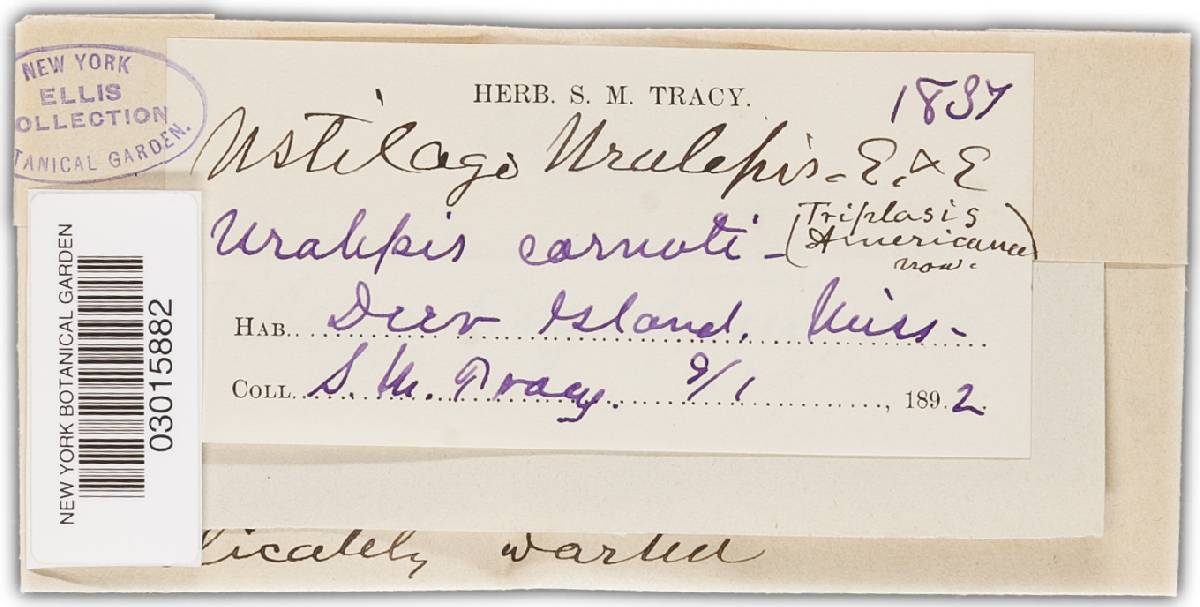 NEW YORK
ELLIS
OLLECTION
TANICAL GARDEN.
HERB. S. M. TRACY.
1837
Ustilago Uralepis - E. & E
Uralepis cornuti - (Triplasis
Americana)
HAB. Deer Island, Miss -
COLL. S. M. Tracy. 9/1, 1892.
NEW YORK BOTANICAL GARDEN
03015882
licately warted